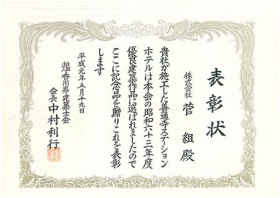 表彰状
株式会社 菅組殿
貴社が施工した善通寺ステーション
ホテルは本会の昭和六十三年度
優良建築作品に選ばれましたので
ここに記念品を贈りこれを表彰
します
平成元年五月十九日
香川県建築士会
会長 中村利行